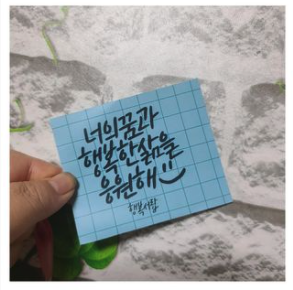 너의꿈과
행복한삶을
응원해
행복서랍